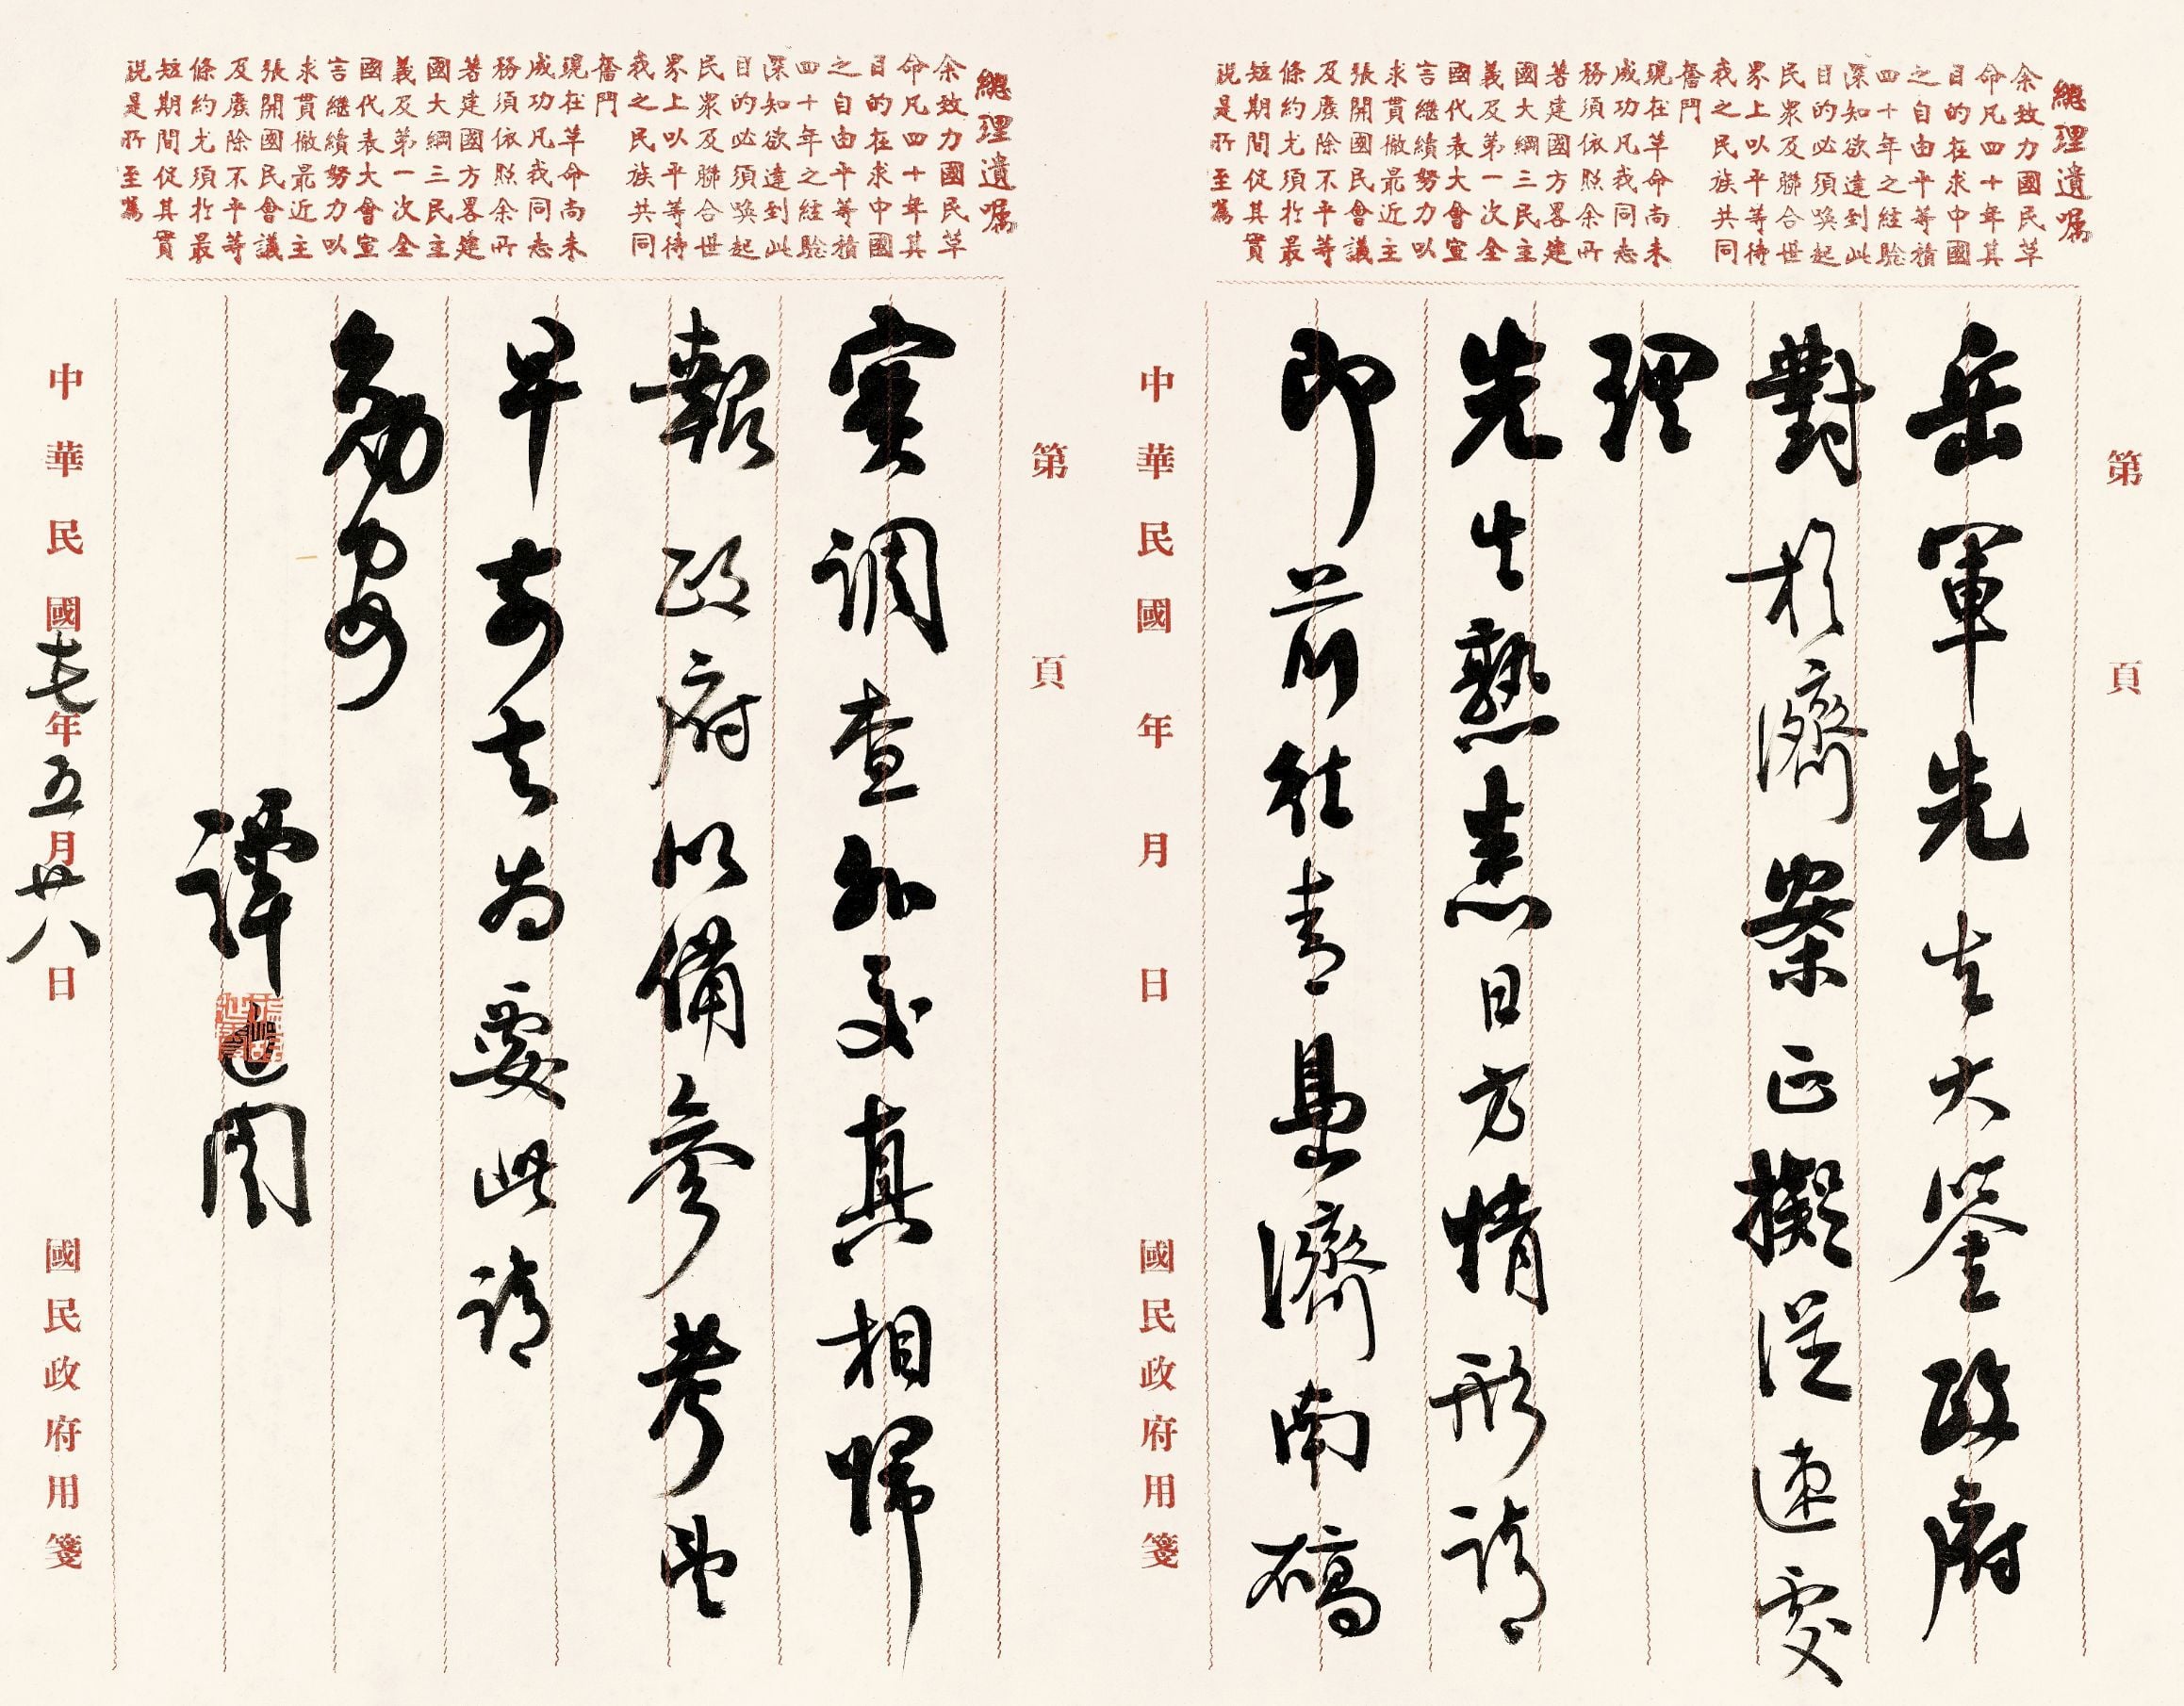 第 頁
總理遺囑
余致力國民革
命凡四十年其
目的在求中國
之自由平等積
四十年之經驗
深知欲達到此
目的必須喚起
民眾及聯合世
界上以平等待
我之民族共同
奮鬥
現在革命尚未
成功凡我同志
務須依照余所
著建國方畧建
國大綱三民主
義及第一次全
國代表大會宣
言繼續努力以
求貫徹最近主
張開國民會議
及廢除不平等
條約尤須於最
短期間促其實
現是所至囑
岳軍先生大鑒政府
對於濟案正擬從速處
理
先生熟悉日方情形請
即前往青島濟南確
中華民國 年 月 日 國民政府用箋
第 頁
總理遺囑
余致力國民革
命凡四十年其
目的在求中國
之自由平等積
四十年之經驗
深知欲達到此
目的必須喚起
民眾及聯合世
界上以平等待
我之民族共同
奮鬥
現在革命尚未
成功凡我同志
務須依照余所
著建國方畧建
國大綱三民主
義及第一次全
國代表大會宣
言繼續努力以
求貫徹最近主
張開國民會議
及廢除不平等
條約尤須於最
短期間促其實
現是所至囑
實調查外交真相歸
報政府以備參考望
早去為要此請
勛安
譚延闓
中華民國十七年五月廿八日 國民政府用箋